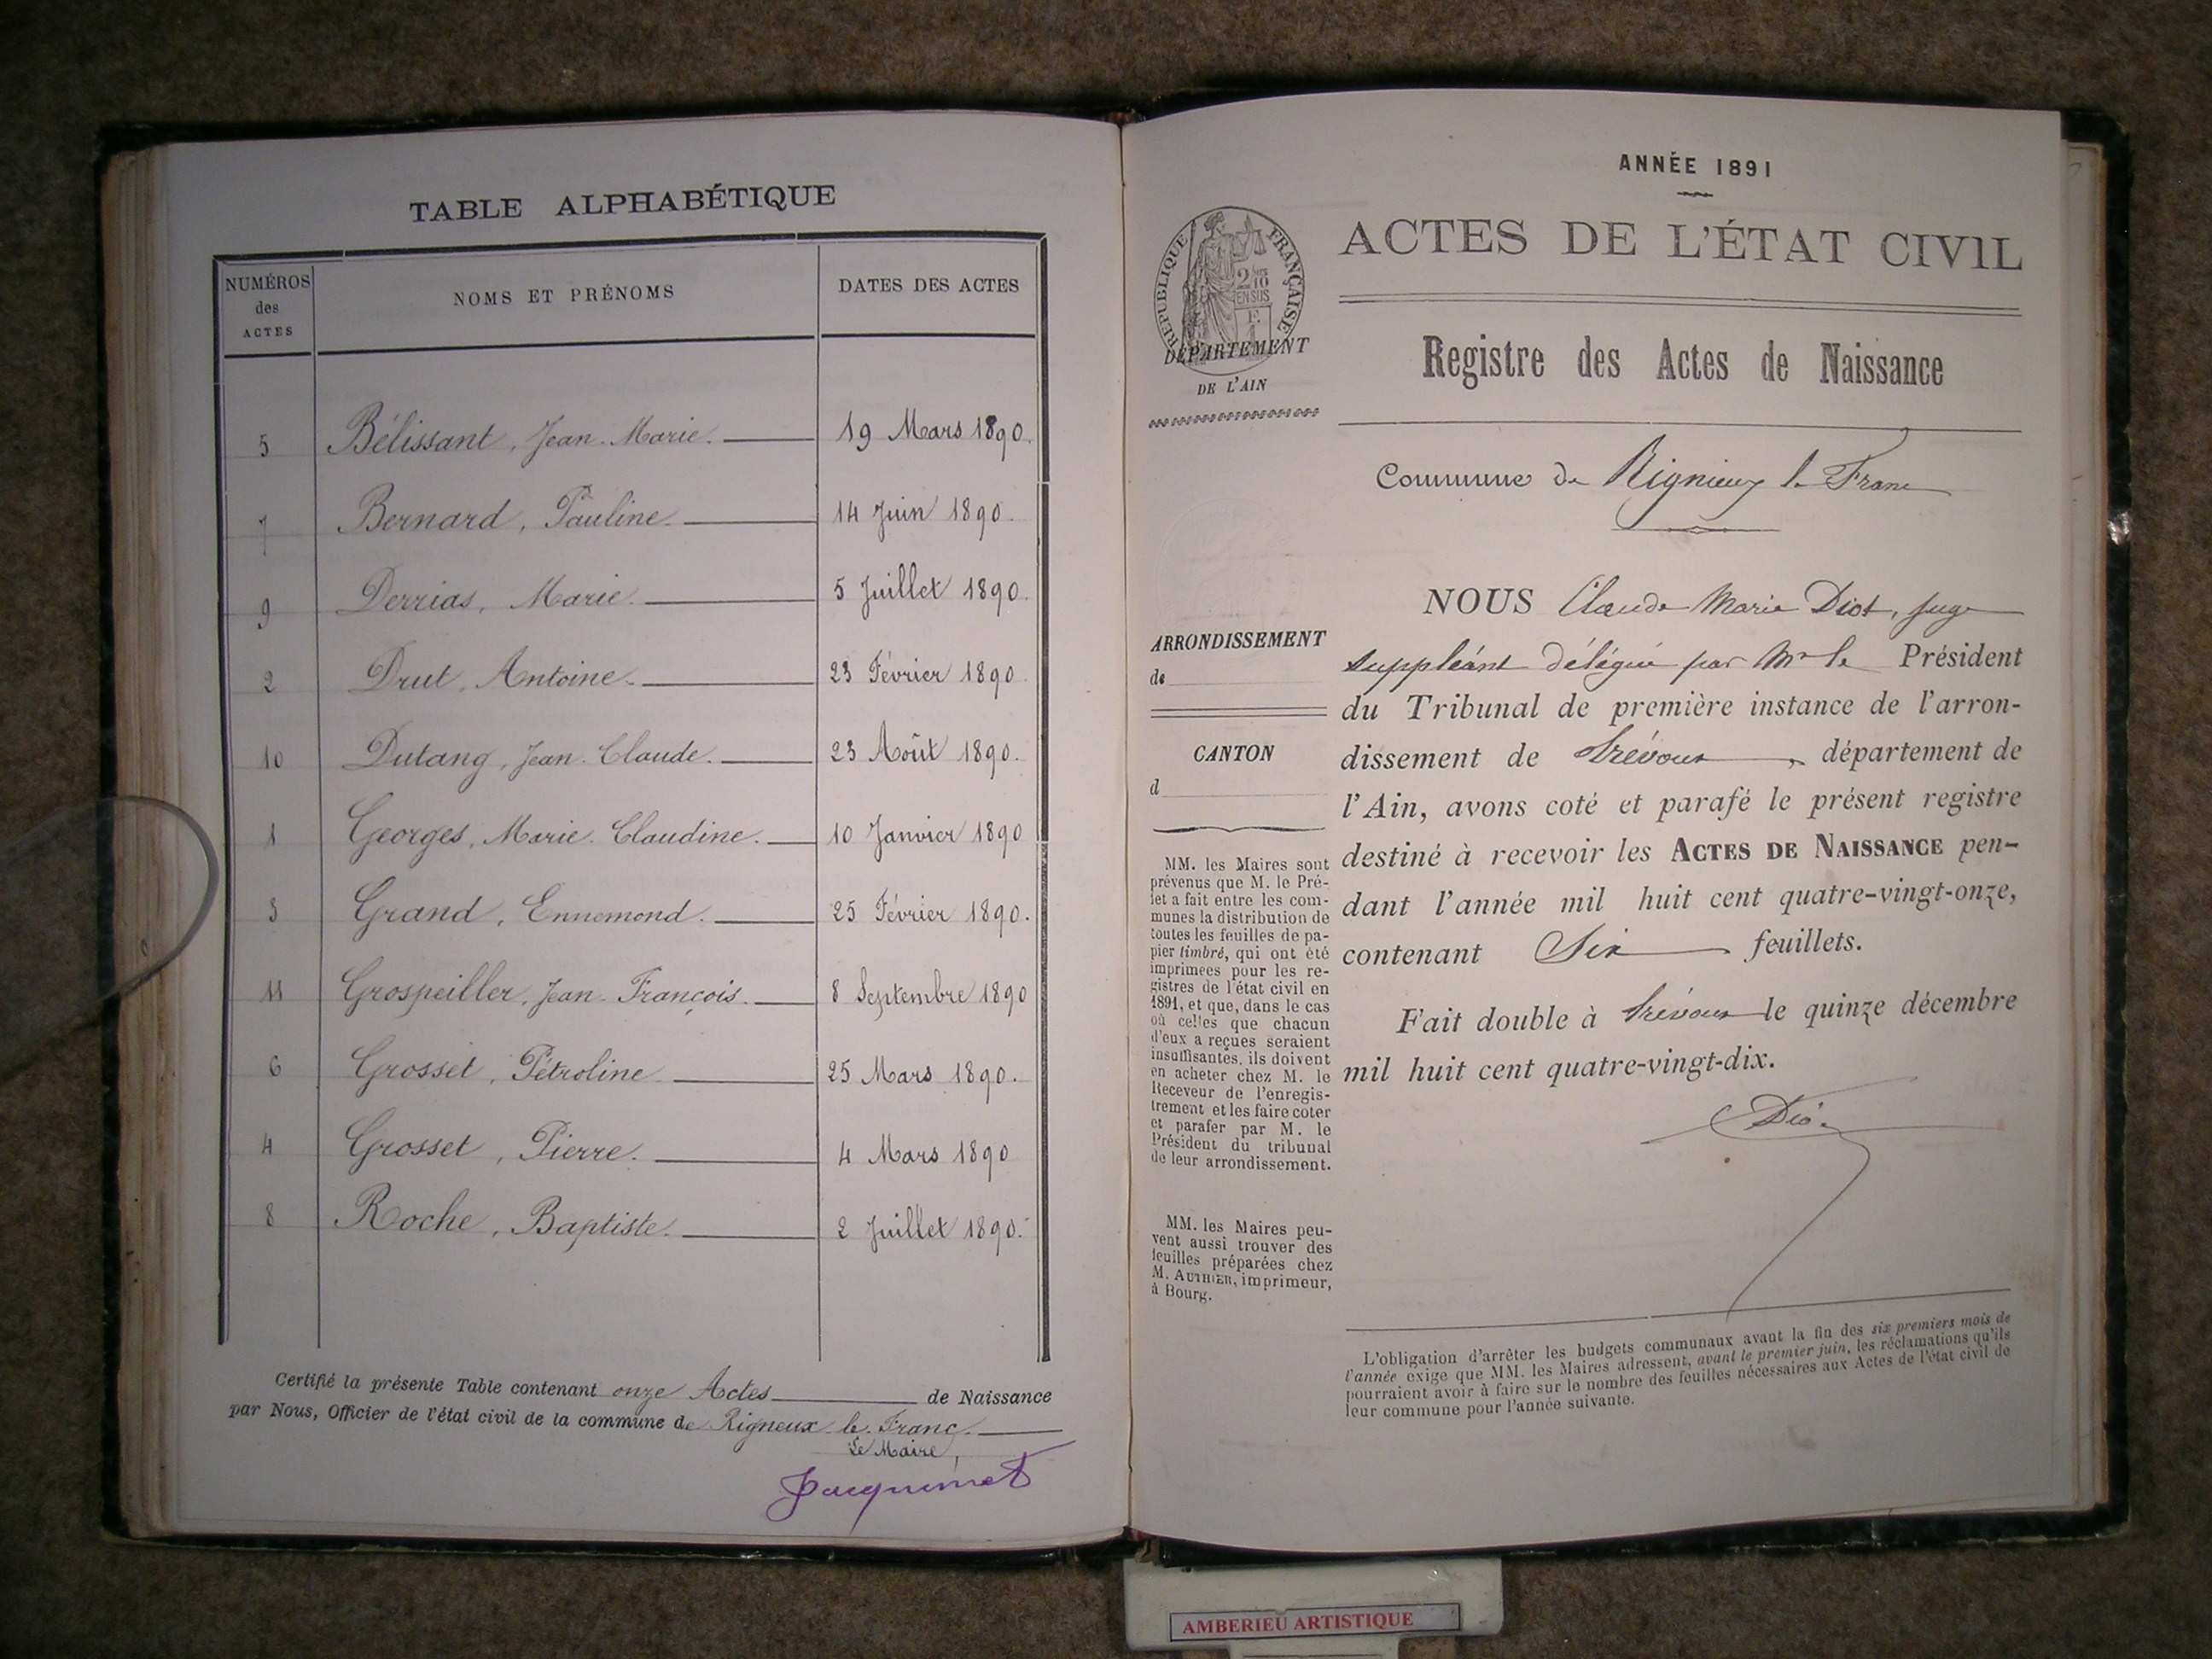 TABLE ALPHABÉTIQUE
NUMÉROS des ACTES
NOMS ET PRÉNOMS
DATES DES ACTES
5 Bélissant, Jean-Marie. 19 Mars 1890.
7 Bernard, Pauline. 14 Juin 1890.
9 Derrias, Marie. 5 Juillet 1890.
2 Drut, Antoine. 23 Février 1890.
10 Dutang, Jean-Claude. 23 Août 1890.
1 Georges, Marie-Claudine. 10 Janvier 1890
3 Grand, Ennemond. 25 Février 1890.
11 Grospeiller, Jean-François. 8 Septembre 1890
6 Grosset, Pétroline 25 Mars 1890.
4 Grosset, Pierre. 4 Mars 1890
8 Roche, Baptiste. 2 Juillet 1890.
Certifié la présente Table contenant onze Actes de Naissance
par Nous, Officier de l'état civil de la commune de Rigneux-le-Franc.
Le Maire,
Jacquemet
ANNÉE 1891
RÉPUBLIQUE FRANÇAISE
2/10
EN SUS
DÉPARTEMENT
DE L'AIN
ACTES DE L'ÉTAT CIVIL
Registre des Actes de Naissance
Commune de Rignieux le Franc
ARRONDISSEMENT
de
CANTON
d
MM. les Maires sont
prévenus que M. le Pré-
fet a fait entre les com-
munes la distribution de
toutes les feuilles de pa-
pier timbré, qui ont été
imprimées pour les re-
gistres de l'état civil en
1891, et que, dans le cas
où celles que chacun
d'eux a reçues seraient
insuffisantes, ils doivent
en acheter chez M. le
Receveur de l'enregis-
trement et les faire coter
et parafer par M. le
Président du tribunal
de leur arrondissement.
MM. les Maires peu-
vent aussi trouver des
feuilles préparées chez
M. AUTHIER, imprimeur,
à Bourg.
NOUS Claude Marie Diot, juge
suppléant délégué par Mr le Président
du Tribunal de première instance de l'arron-
dissement de Trévoux, département de
l'Ain, avons coté et parafé le présent registre
destiné à recevoir les ACTES DE NAISSANCE pen-
dant l'année mil huit cent quatre-vingt-onze,
contenant Six feuillets.
Fait double à Trévoux le quinze décembre
mil huit cent quatre-vingt-dix.
Diot
L'obligation d'arrêter les budgets communaux avant la fin des six premiers mois de
l'année exige que MM. les Maires adressent, avant le premier juin, les réclamations qu'ils
pourraient avoir à faire sur le nombre des feuilles nécessaires aux Actes de l'état civil de
leur commune pour l'année suivante.
AMBERIEU ARTISTIQUE